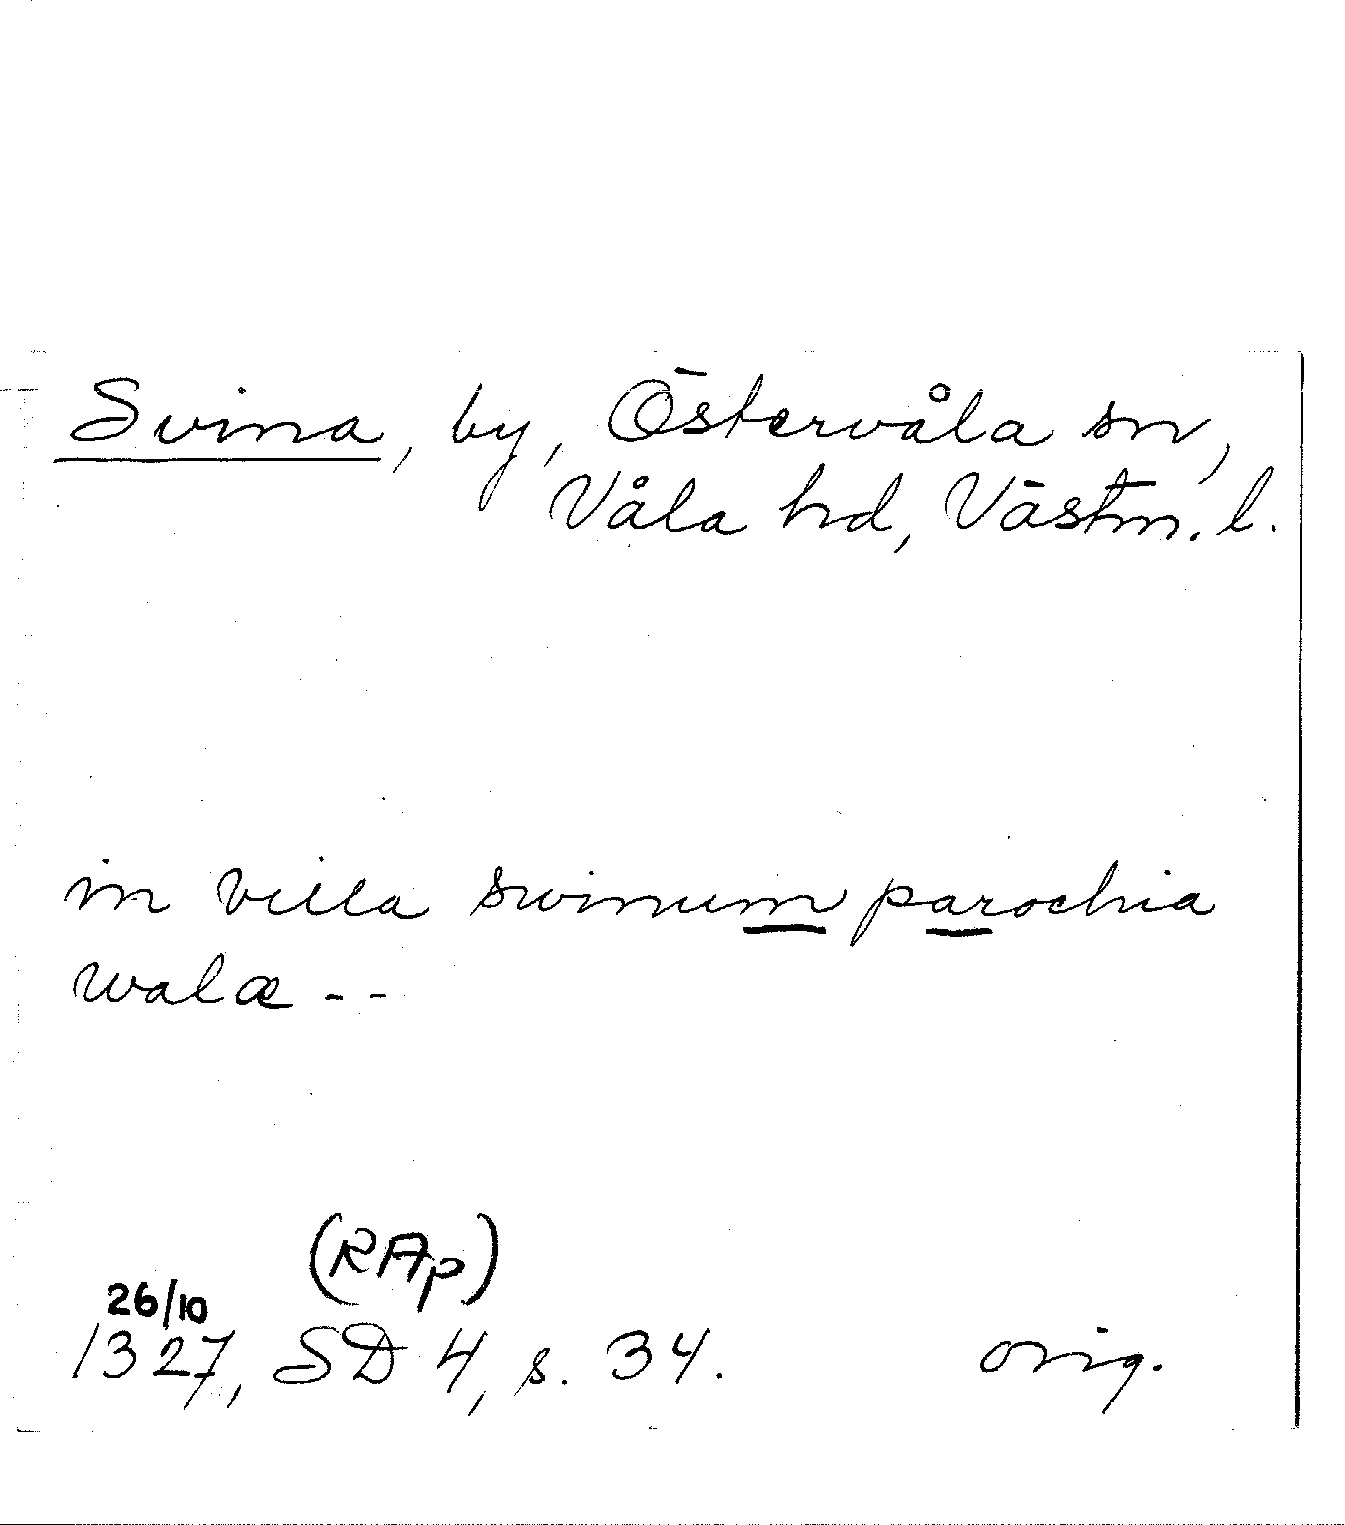 Svina, by, Östervåla sn,
Våla hd, Västm. l.
in villa swinum parochia
walæ - -
(RAp)
26/10
1327, SD 4, s. 34. orig.